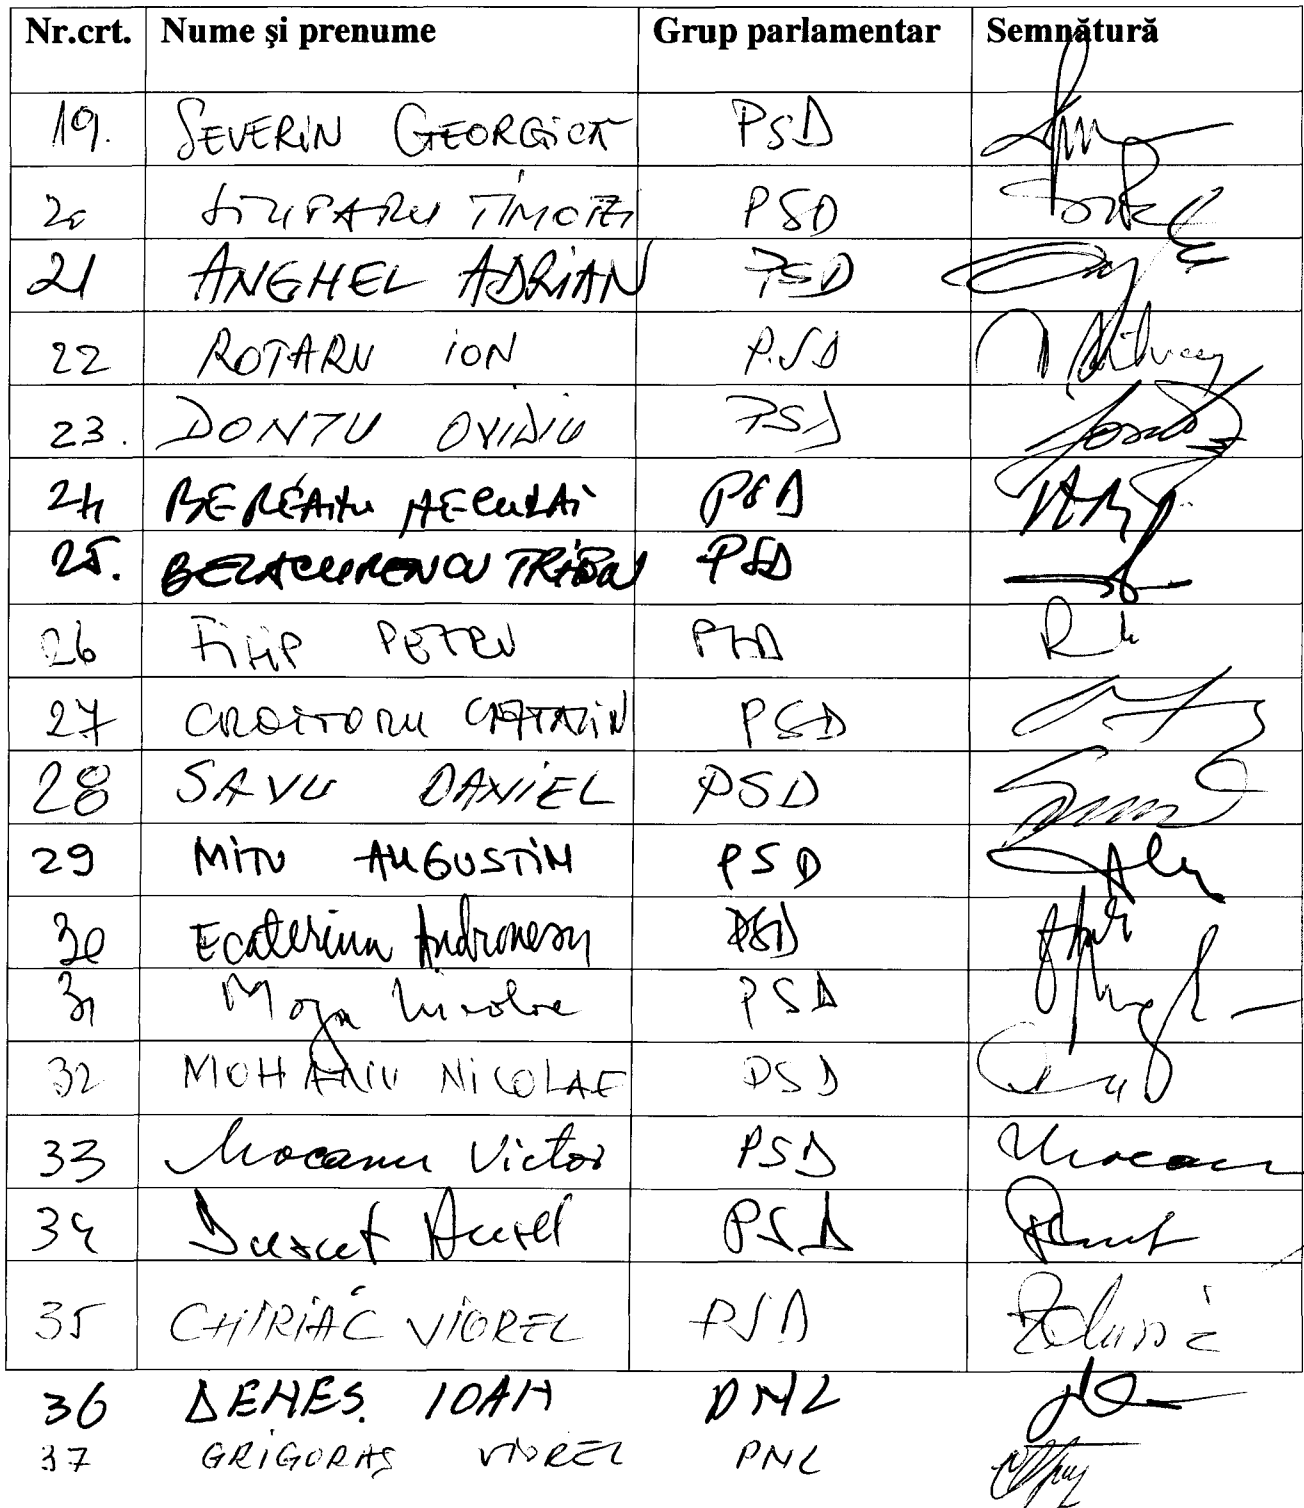 Nr.crt. Nume şi prenume Grup parlamentar Semnătură
19. SEVERIN GEORGICA PSD
20 STUPARU TIMOTEI PSD
21 ANGHEL ADRIAN PSD
22 ROTARU ION PSD
23. DONTU OVIDIU PSD
24 BEREANU NECULAI PSD
25. BELACURENCU TRIFON PSD
26 FILIP PETRU PSD
27 CROITORU CATALIN PSD
28 SAVU DANIEL PSD
29 MITU AUGUSTIN PSD
30 Ecaterina Andronescu PSD
31 Moga Nicolae PSD
32 MOHANU NICOLAE PSD
33 Mocanu Victor PSD Mocanu
34 Aurel PSD
35 CHIRIAC VIOREL PSD
36 DENES. IOAN PNL
37 GRIGORAŞ VIOREL PNL